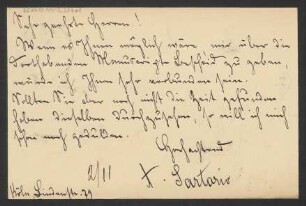 Sehr geehrte Herren!
Wenn es Ihnen möglich wäre mir über die
Manuscripte Bescheid zu geben,
würde ich Ihnen sehr verbunden sein.
Sollten Sie aber noch nicht die Zeit gefunden
haben dieselben durchzusehen, so will ich mich
schon noch gedulden.
Hochachtend
2/11 X. Sartorio
Köln Lindenstr. 79